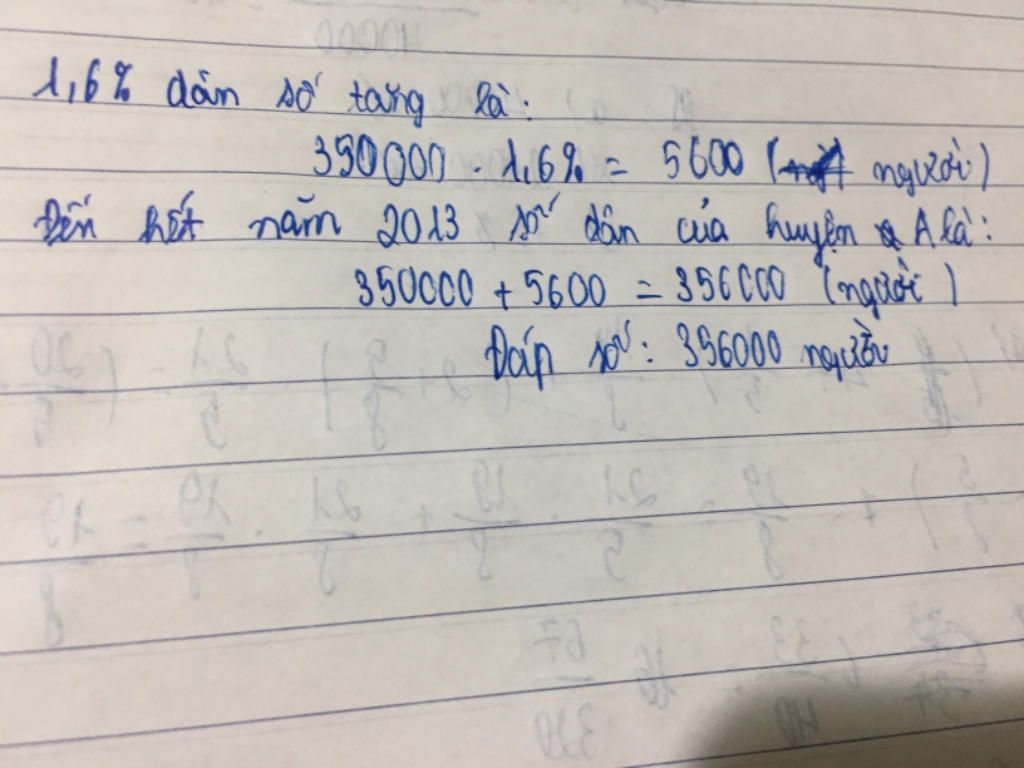 1,6% dân số tăng là:
350000 . 1,6% = 5600 (người)
Đến hết năm 2013 số dân của huyện A là:
350000 + 5600 = 356000 (người)
Đáp số: 356000 người